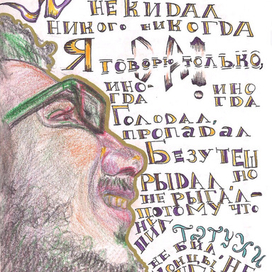 Я НЕ КИДАЛ
НИКОГО НИКОГДА
Я ГОВОРЮ ТОЛЬКО,
ИНО-
ГДА
ИНО
ГДА
ГОЛОДАЛ,
ПРОПАДАЛ
БЕЗУТЕШ
НО
РЫДАЛ,
НЕ РЫГАЛ-
ПОТОМУ ЧТО
НЕ
ПИЛ
ТАТУХИ
НЕ БИЛ, НЕ